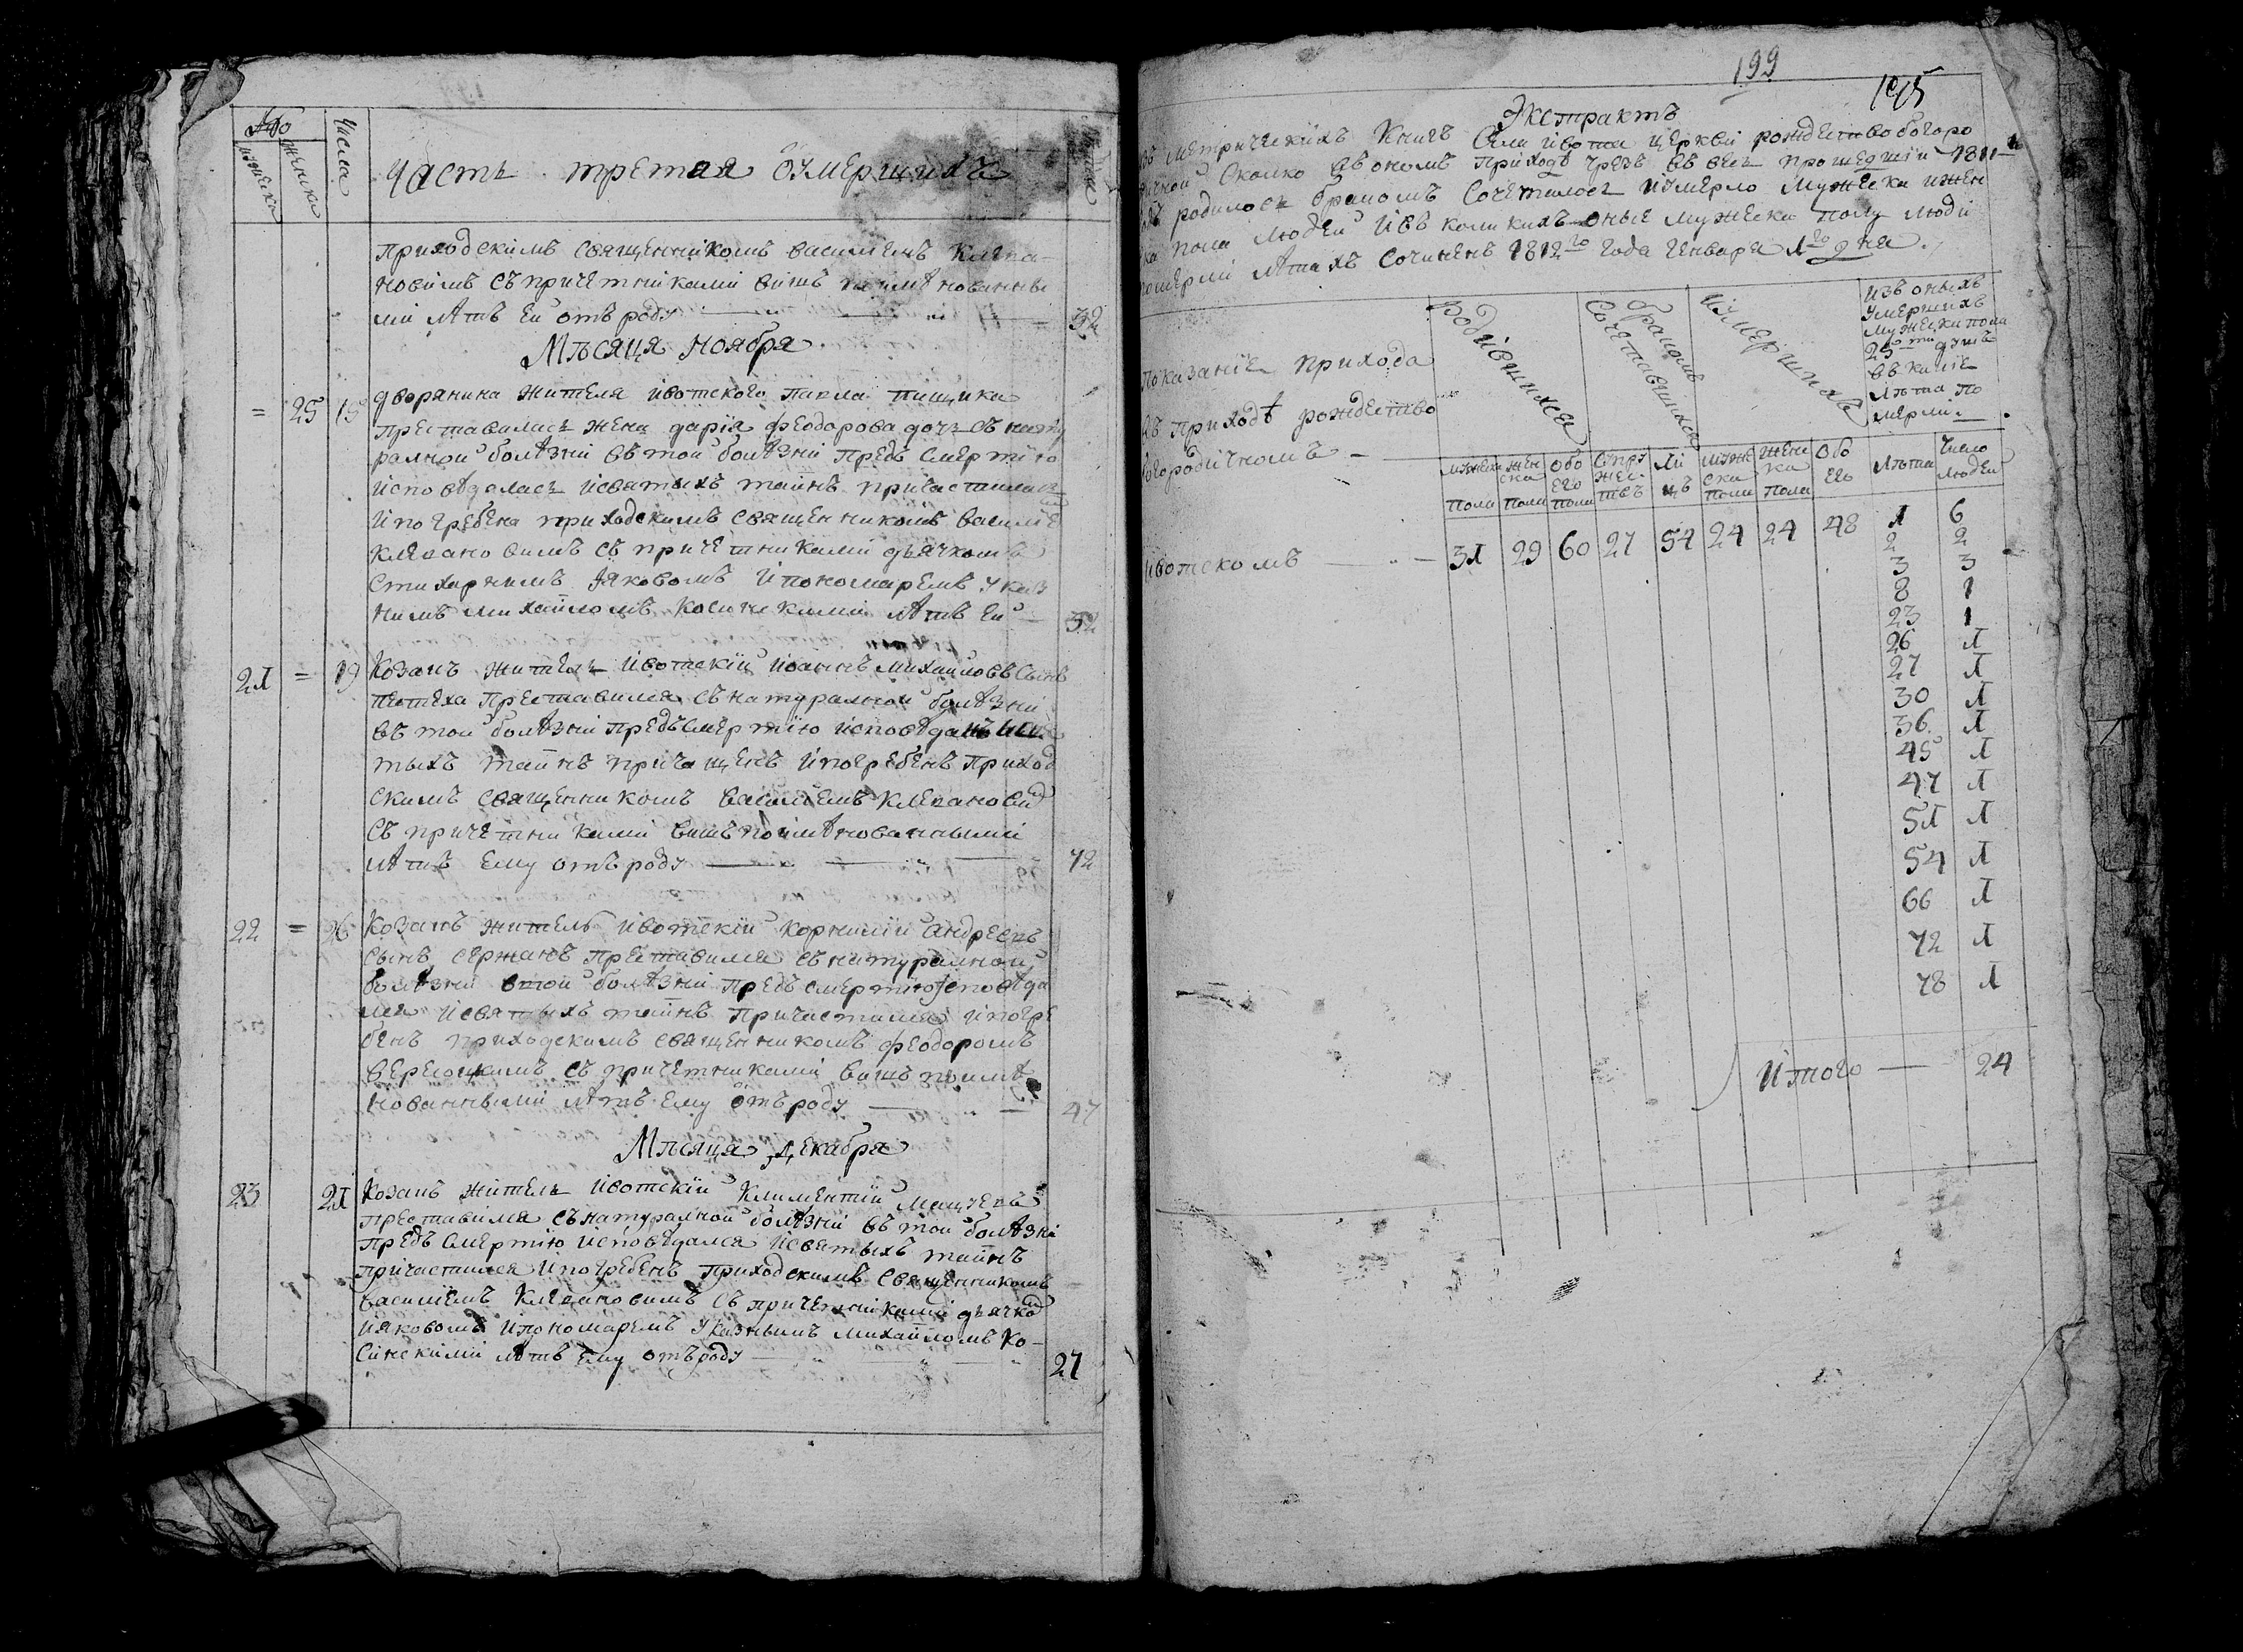 №
мужеска
женска
Числа
Часть третая ѡ умершихъ
приходскимъ священникомъ василиемъ Клепа-
новимъ съ причетниками вишъ поимѣнованны
ми лѣтъ ей отъ роду
Мѣсяця Ноября
= 25 15 дворянина жителя ивотского Павла пищика
преставилась жена дария феодорова дочь съ нату
ралной болѣзни въ той болѣзни предъ смертию
исповѣдалась и святыхъ таинъ причастилась
и погребена приходскимъ священникомъ василие
клепановимъ съ причетниками дьячкомъ
стихарнимъ Іяковомъ и пономаремъ указ
нимъ михайломъ Косинскими лѣтъ ей 52
21 = 19 Козакъ житель ивотский иоаннъ михайловъ сынъ
преставился съ натуралной болѣзни
въ той болѣзни предъ смертию исповѣданъ и свя
тыхъ таинъ причащенъ и погребенъ приход
скимъ священникомъ василиемъ клепановим
съ причетниками вишъ поимѣнованными
лѣтъ ему отъ роду 72
22 = 26 Козакъ житель ивотский корнилий андреевъ
сынъ сержанъ преставился съ натуралной
болѣзни в той болѣзни предъ смертию исповѣда
лся и святыхъ таинъ причастился и погре
бенъ приходскимъ священникомъ феодоромъ
съ причетниками вишъ поимѣ
нованными лѣтъ ему отъ роду 47
Мѣсяця Декабря
23 21 Козакъ житель ивотский климентий
преставился съ натуралной болѣзни въ той болѣзни
предъ смертию исповѣдался и святыхъ таинъ
причастился и погребенъ приходскимъ священникомъ
василиемъ Клепановимъ съ причетниками дьячком
Іяковомъ и пономаремъ указнымъ михайломъ Ко-
синскими лѣтъ ему отъ роду 27
199
195
Экстрактъ
метрическихъ книгъ села ивота церкви рождество богоро
дичной сколко въ ономъ приходѣ чрезъ въ весь прошедший 1811
родилось бракомъ сочеталось и умерло мужеска и жен
ска пола людей и въ коликихъ оные мужеска полу люди
померли лѣтахъ сочиненъ 1812го года генваря 1го дня
Показание прихода
Родившихся
бракомъ Сочетавшихся
Умершихъ
изъ оныхъ
умершихъ
мужеска пола
въ какие
лѣта по
мерли
въ приходѣ рождество
богородичномъ
мужеска пола
женска пола
обоего пола
супружествъ
лицъ
мужеска пола
женска пола
обоего
лѣта
число людей
ивотскомъ 31 29 60 27 54 24 24 48
1 6
2 2
3 3
8 1
23 1
26 1
27 1
30 1
36 1
45 1
47 1
51 1
54 1
66 1
72 1
78 1
Итого 24